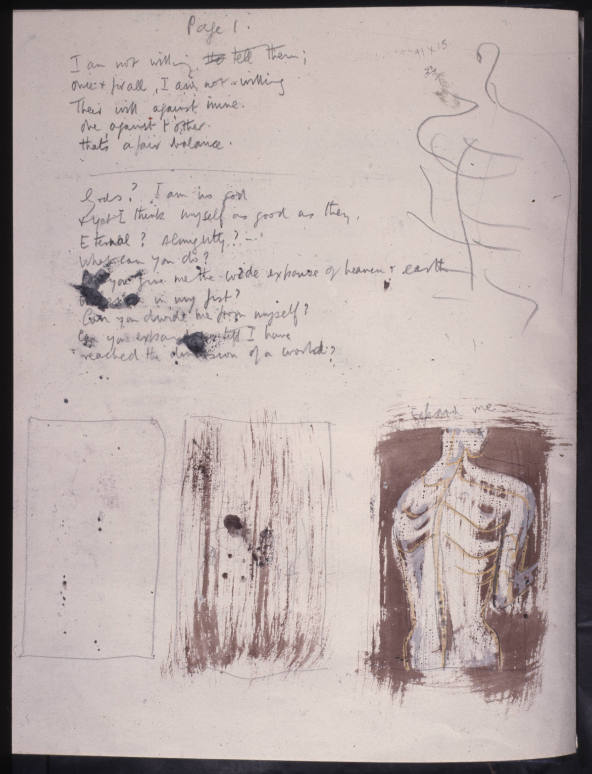 Page 1.
I am not willing, tell them;
once + for all, I am not willing
Their will against mine.
one against t'other.
thats a fair balance.
Gods? I am no god
+ yet I think myself as good as they.
Eternal? Almighty? -
What can you do?
you give me the wide expanse of heaven + earth
in my fist?
Can you divide me from myself?
Can you expand till I have
reached the dimension of a world?
expand me